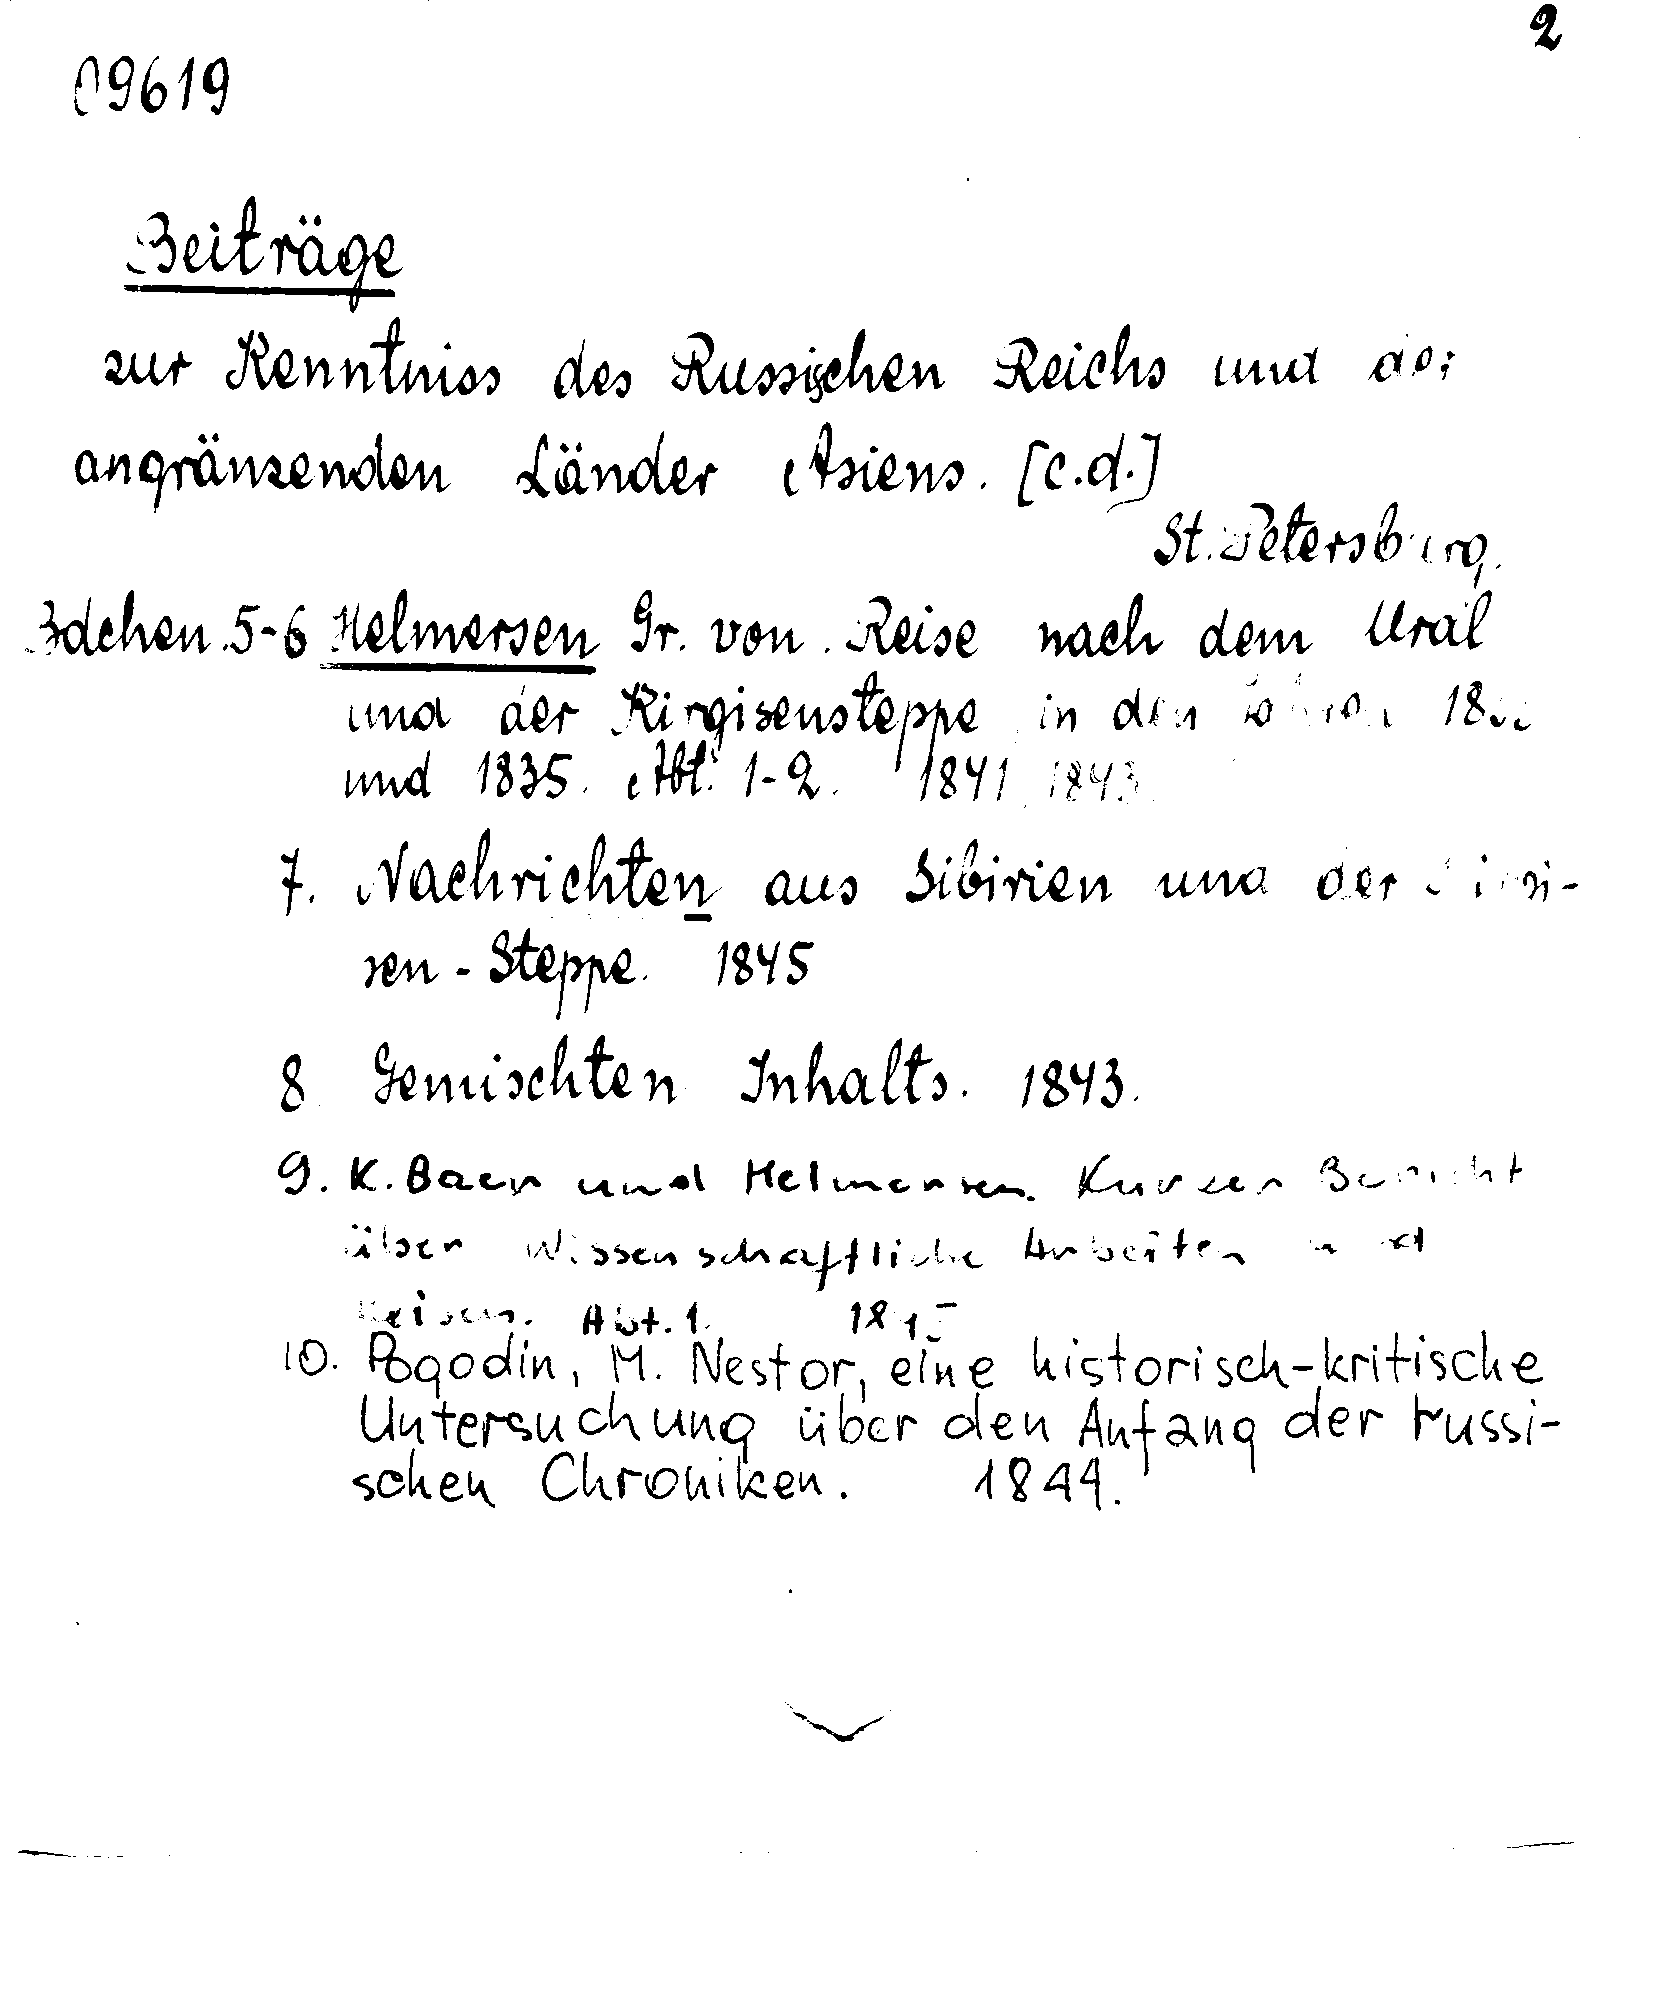 2
09619
Beiträge
zur Kenntniss des Russischen Reichs und der
angränzenden Länder Asiens. [c.d.]
St. Petersburg.
Bdchen. 5-6 Helmersen Gr. von. Reise nach dem Ural
und der Kirgisensteppe in den Jahren
und 1835. Abt. 1-2. 1841, 1843.
7. Nachrichten aus Sibirien und der Kirgi-
sen-Steppe. 1845
8 Gemischten Inhalts. 1843.
9. K. Baer und Helmersen. Kurzer Bericht
über Wissenschaftliche Arbeiten und
Reisen. Abt. 1.
10. Pogodin, M. Nestor, eine historisch-kritische
Untersuchung über den Anfang der russi-
schen Chroniken. 1844.